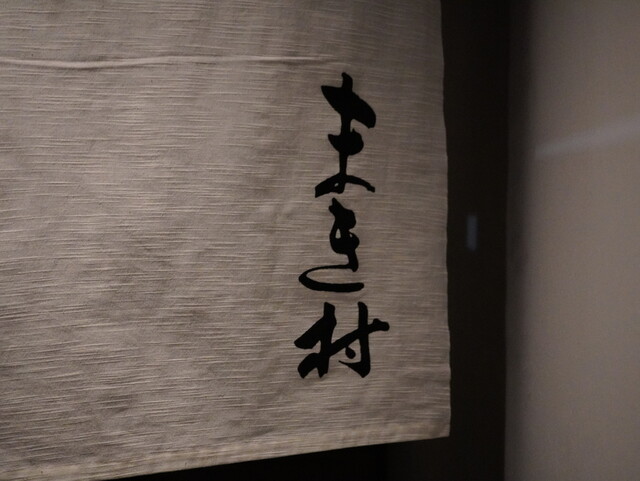 まき村